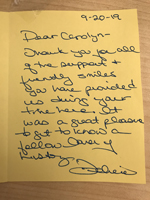 9-20-19
Dear Carolyn-
Thank you for all
of the support &
friendly smiles
you have provided
us during your
time here. It
was a great pleasure
to get to know a
fellow